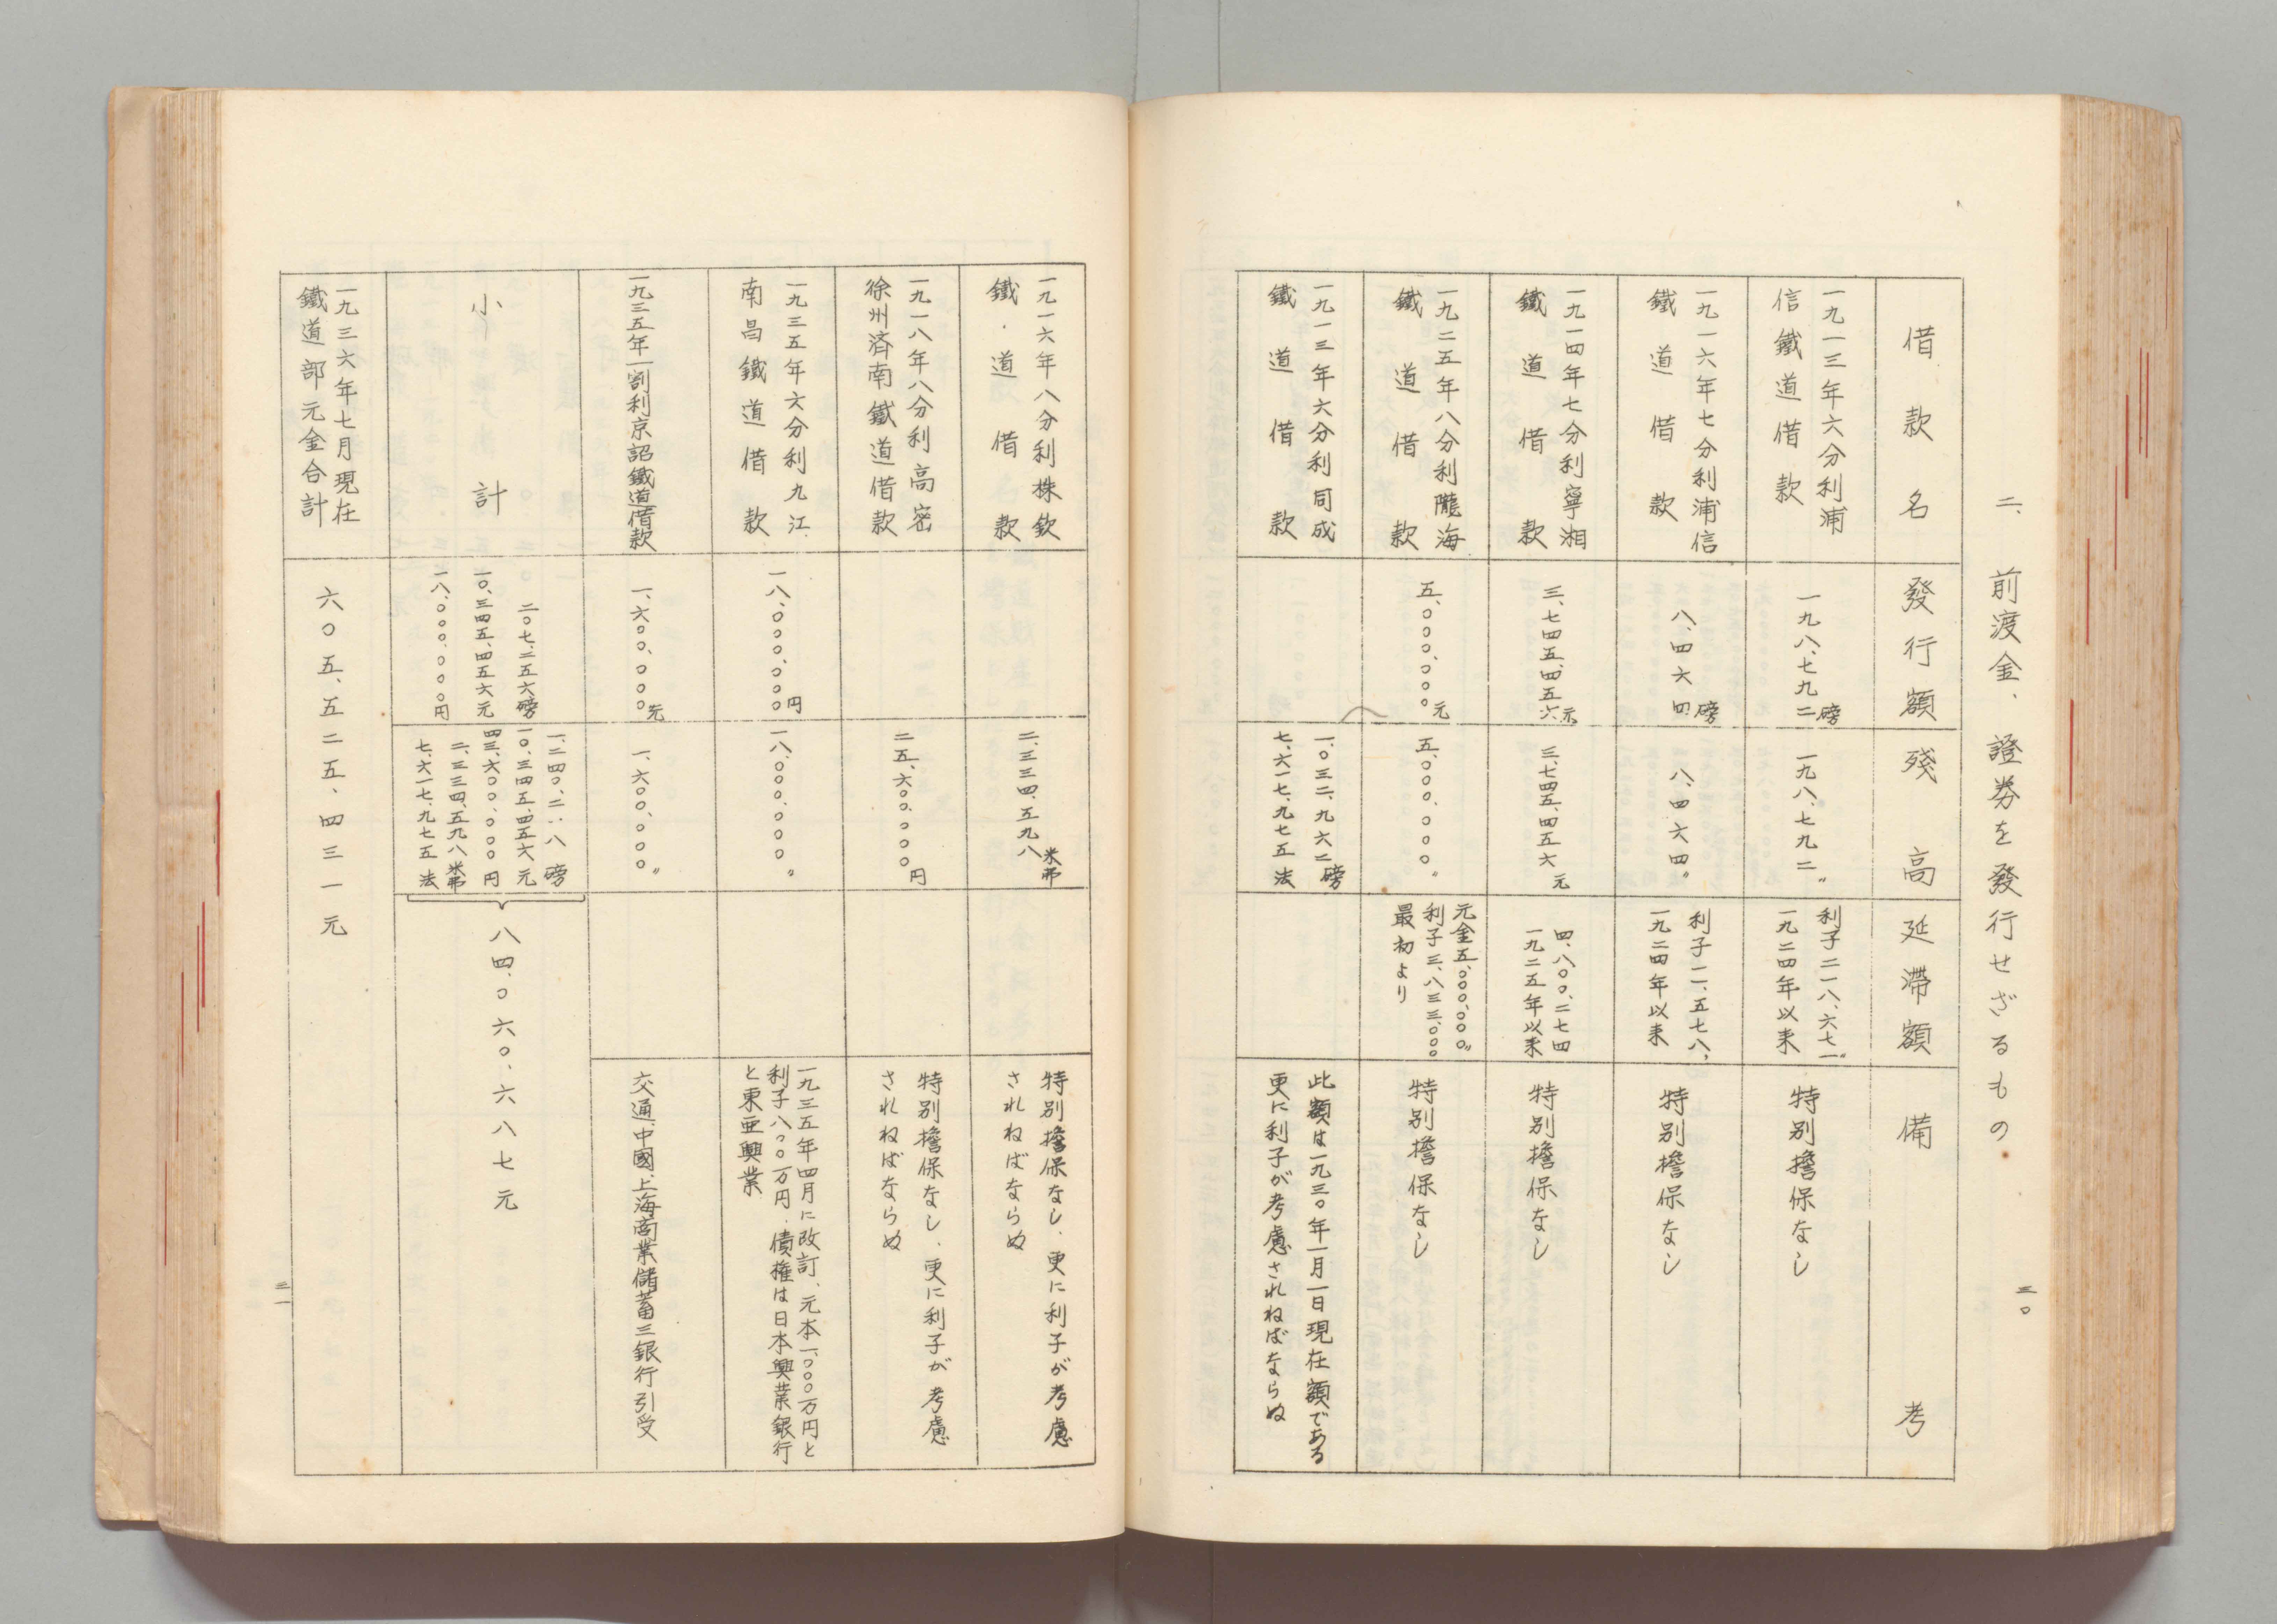 二、前渡金、證券を發行せざるもの
借款名
發行額
殘高
延滯額
備考
一九一三年六分利浦
信鐵道借款
一九八、七九二磅
一九八、七九二〃
利子二一八、六七一〃
一九二四年以来
特別擔保なし
一九一六年七分利浦信
鐵道借款
八、四六四磅
八、四六四〃
利子一一、五七八、
一九二四年以来
特別擔保なし
一九一四年七分利寧湘
鐵道借款
三、七四五、四五六元
三、七四五、四五六元
四、八〇〇、二七四
一九二五年以来
特別擔保なし
一九二五年八分利隴海
鐵道借款
五、〇〇〇、〇〇〇元
五、〇〇〇、〇〇〇〃
元金五、〇〇〇、〇〇〇〃
利子三、八三三、〇〇〇
最初より
特別擔保なし
一九一三年六分利同成
鐵道借款
一、〇三二、九六二磅
七、六一七、九七五法
此額は一九三〇年一月一日現在額である
更に利子が考慮されねばならぬ
三〇
一九一六年八分利株欽
鐵道借款
二、三三四、五九八米弗
特別擔保なし、更に利子が考慮
されねばならぬ
一九一八年八分利高密
徐州済南鐵道借款
二五、六〇〇、〇〇〇円
特別擔保なし、更に利子が考慮
されねばならぬ
一九三五年六分利九江
南昌鐵道借款
一八、〇〇〇、〇〇〇円
一八、〇〇〇、〇〇〇〃
一九三五年四月に改訂、元本一、〇〇〇万円と
利子八〇〇万円、債権は日本興業銀行
と東亜興業
一九三五年一割利京詔鐵道借款
一、六〇〇、〇〇〇元
一、六〇〇、〇〇〇〃
交通、中國、上海商業儲蓄三銀行引受
小計
二〇七、二五六磅
一〇、三四五、四五六元
一八、〇〇〇、〇〇〇円
一、二四〇、二一八磅
一〇、三四五、四五六元
四三、六〇〇、〇〇〇円
二、三三四、五九八米弗
七、六一七、九七五法
八四、〇六〇、六八七元
一九三六年七月現在
鐵道部元金合計
六〇五、五二五、四三一元
三一